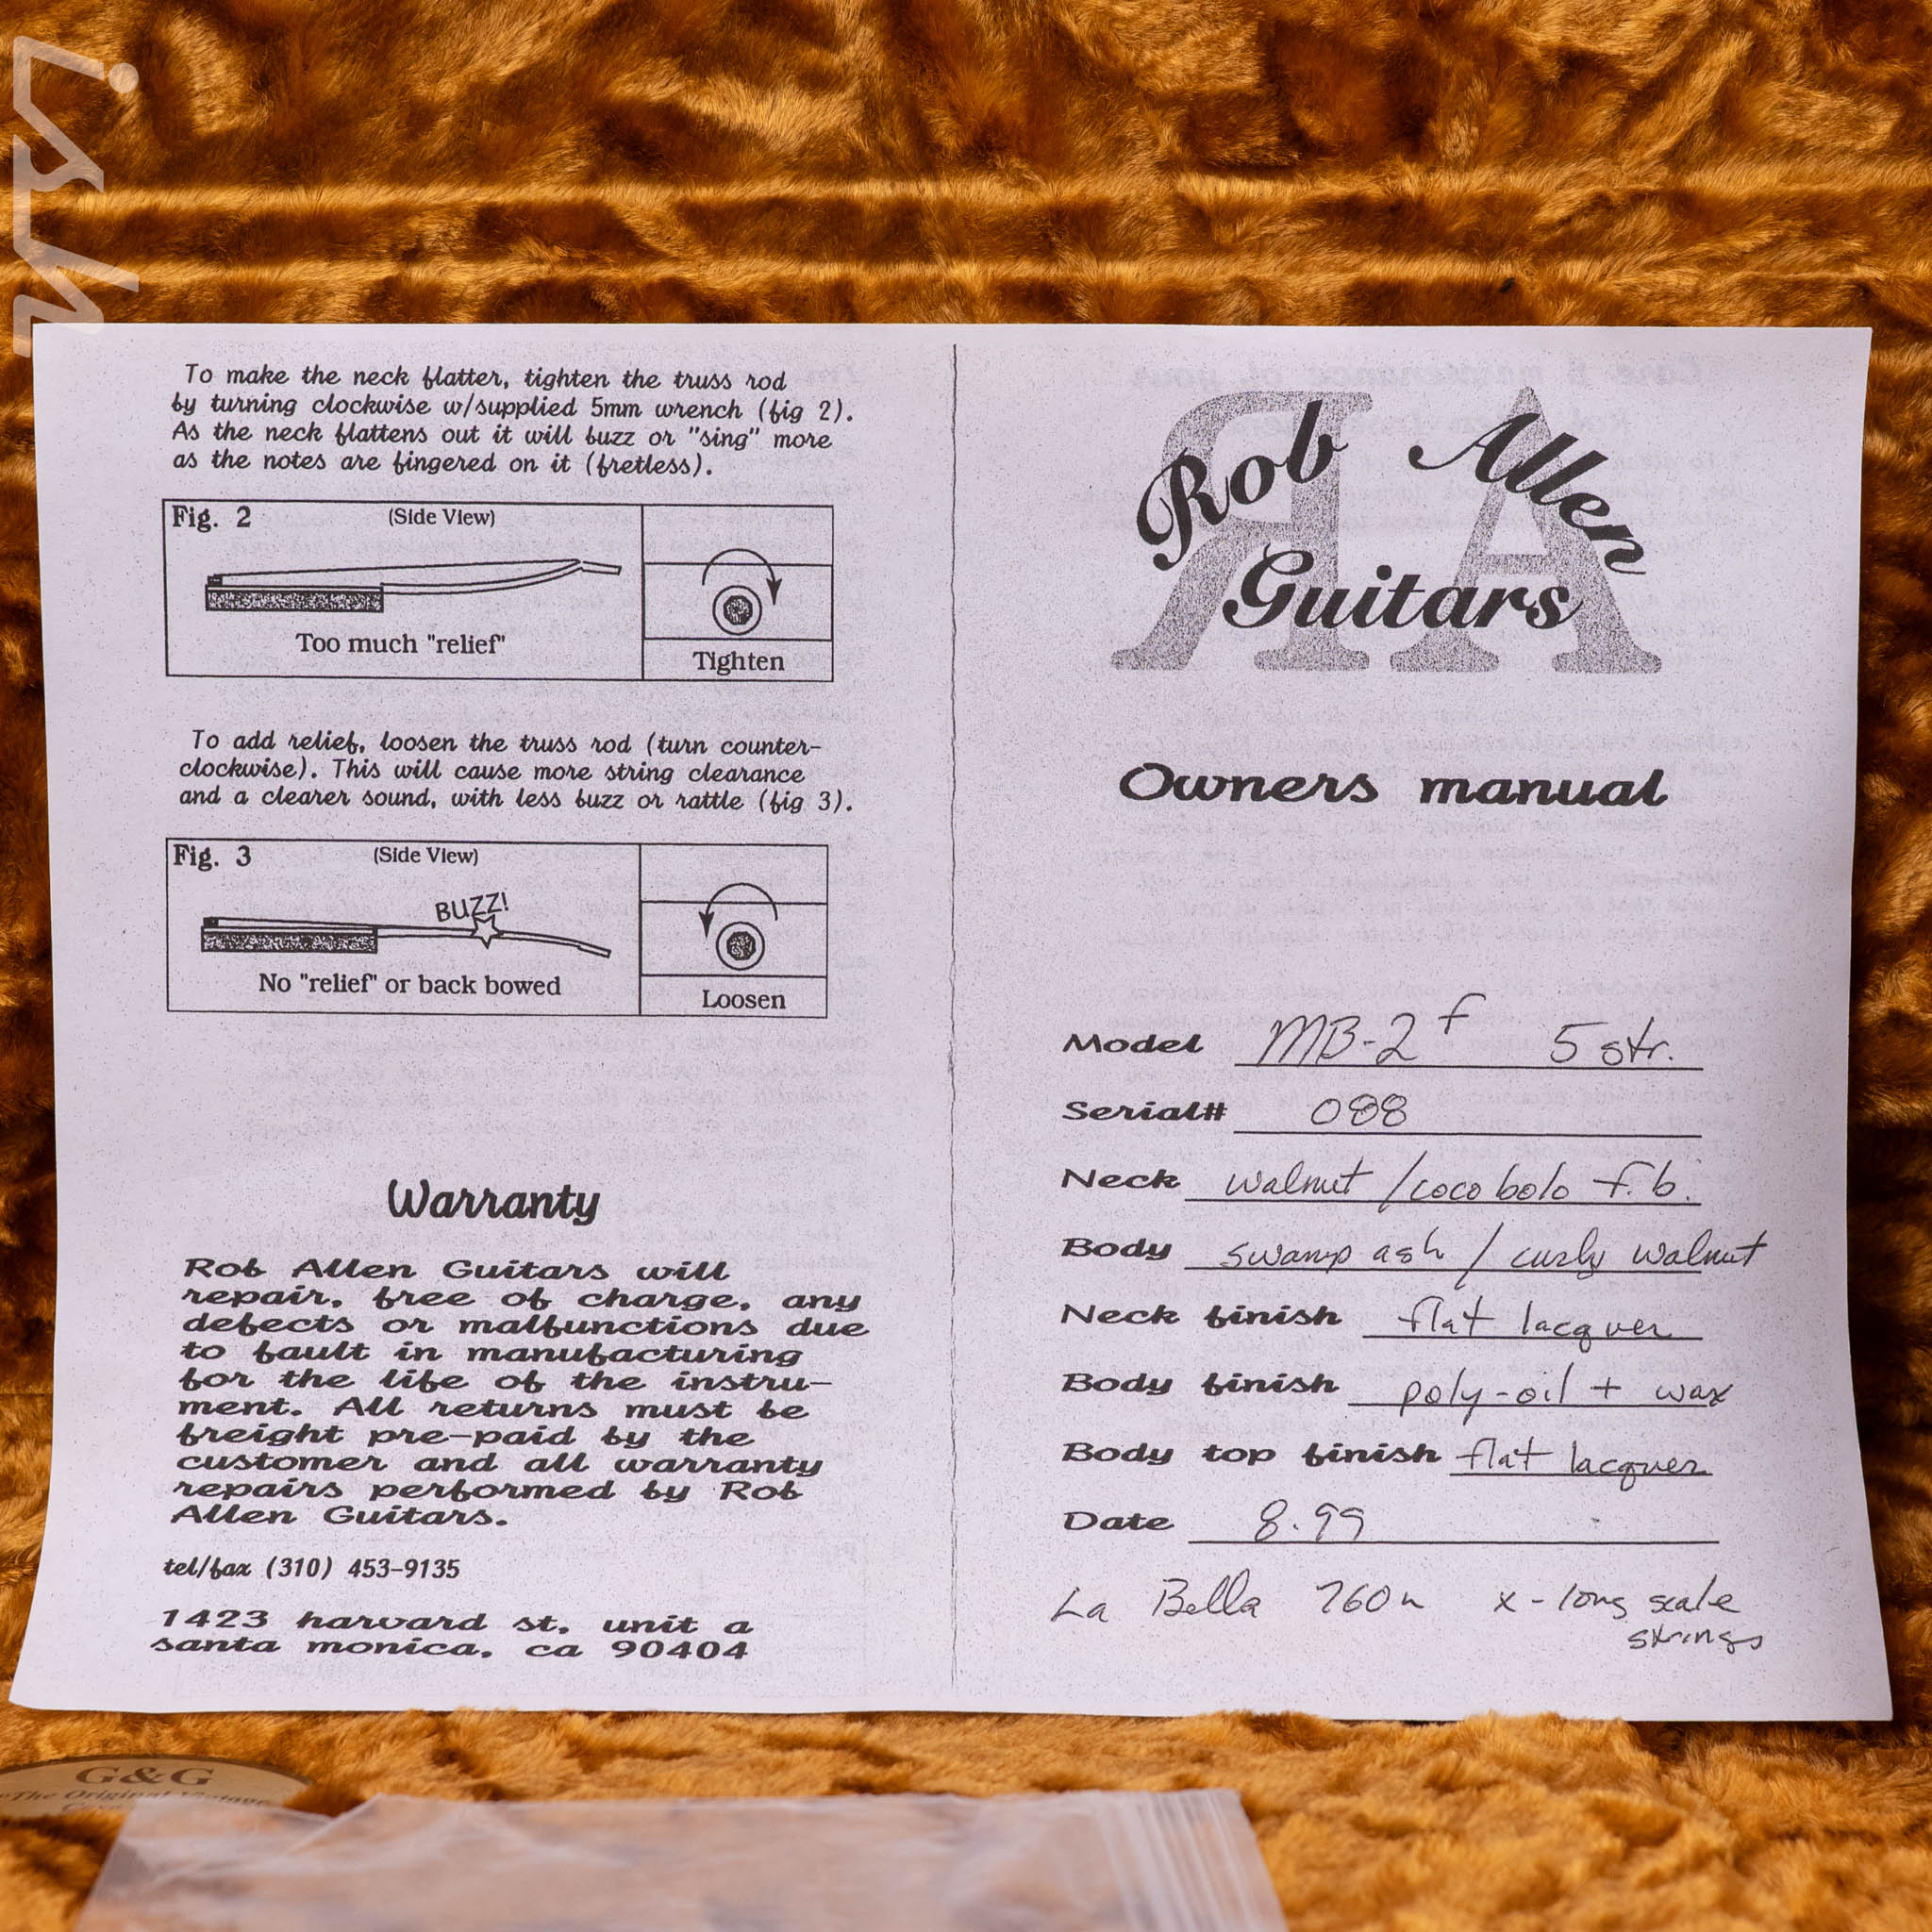 ish
To make the neck flatter, tighten the truss rod
by turning clockwise w/supplied 5mm wrench (fig 2).
As the neck flattens out it will buzz or "sing" more
as the notes are fingered on it (fretless).
Fig. 2 (Side View)
Too much "relief"
Tighten
To add relief, loosen the truss rod (turn counter-
clockwise). This will cause more string clearance
and a clearer sound, with less buzz or rattle (fig 3).
Fig. 3 (Side View)
BUZZ!
No "relief" or back bowed
Loosen
Warranty
Rob Allen Guitars will
repair, free of charge, any
defects or malfunctions due
to fault in manufacturing
for the life of the instru-
ment. All returns must be
freight pre-paid by the
customer and all warranty
repairs performed by Rob
Allen Guitars.
tel/fax (310) 453-9135
1423 harvard st. unit a
santa monica, ca 90404
RA
Rob Allen
Guitars
Owners manual
Model MB-2 f 5 str.
Serial# 088
Neck walnut / cocobolo f.b.
Body swamp ash / curly walnut
Neck finish flat lacquer
Body finish poly-oil + wax
Body top finish flat lacquer
Date 8.99
La Bella 760n x-long scale
strings
G&G
"The Original Vintage